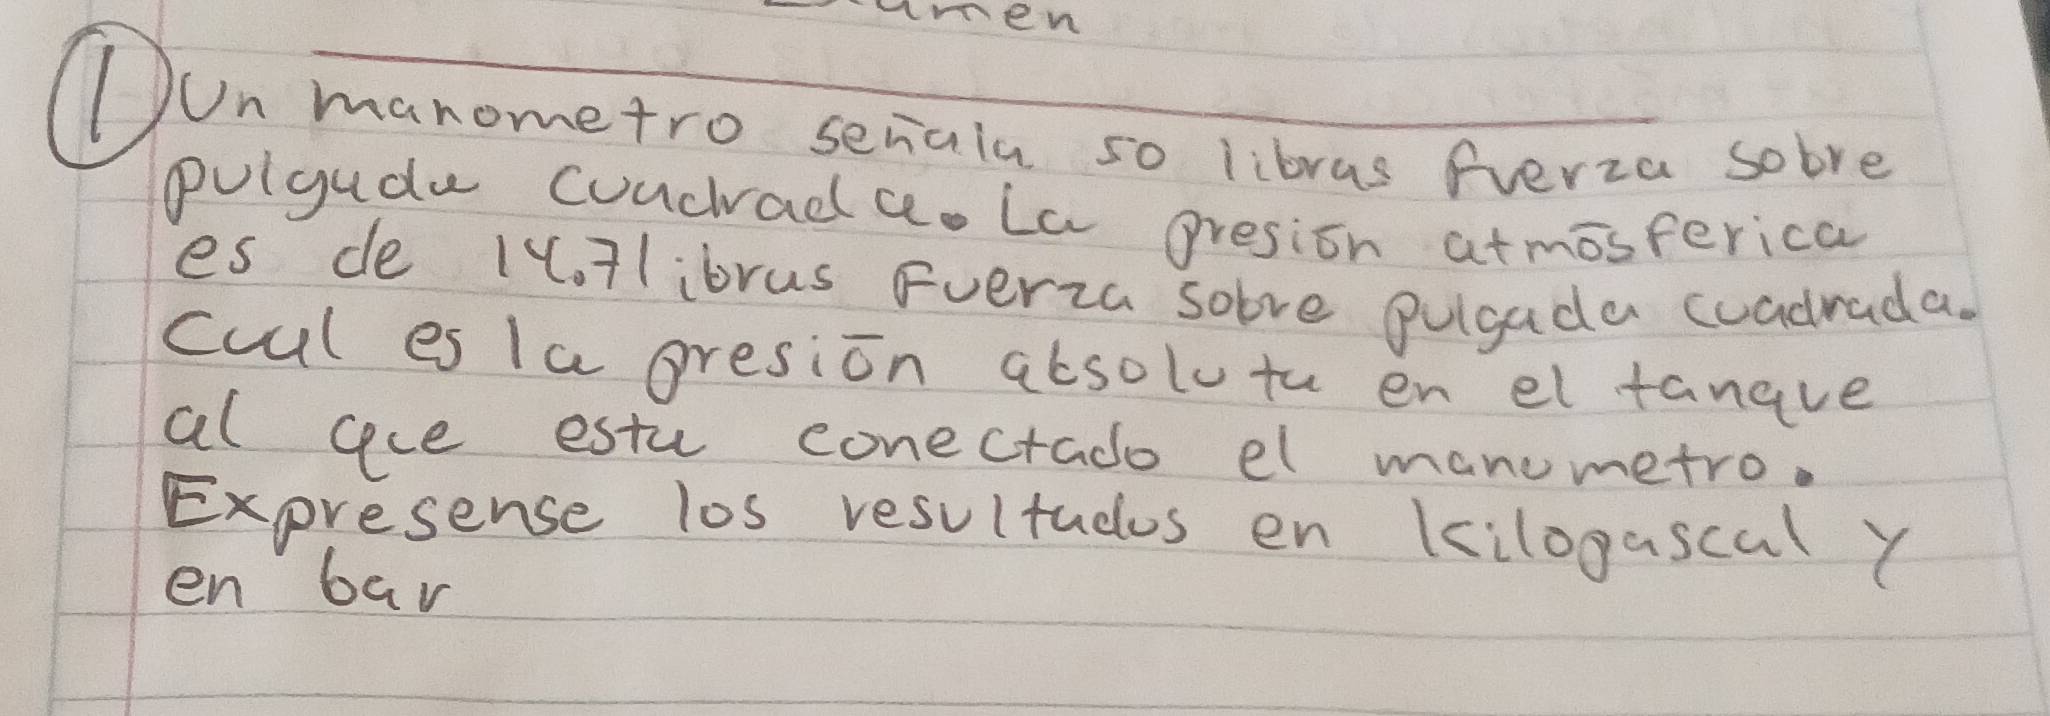 ① Un manometro señala 50 libras fuerza sobre
pulgada cuadrada. La presión atmósferica
es de 14.7 libras Fuerza sobre pulgada cuadrada.
Cual es la presión absoluta en el tanque
al que esta conectado el manometro.
Expresense los resultados en kilopascal y
en bar